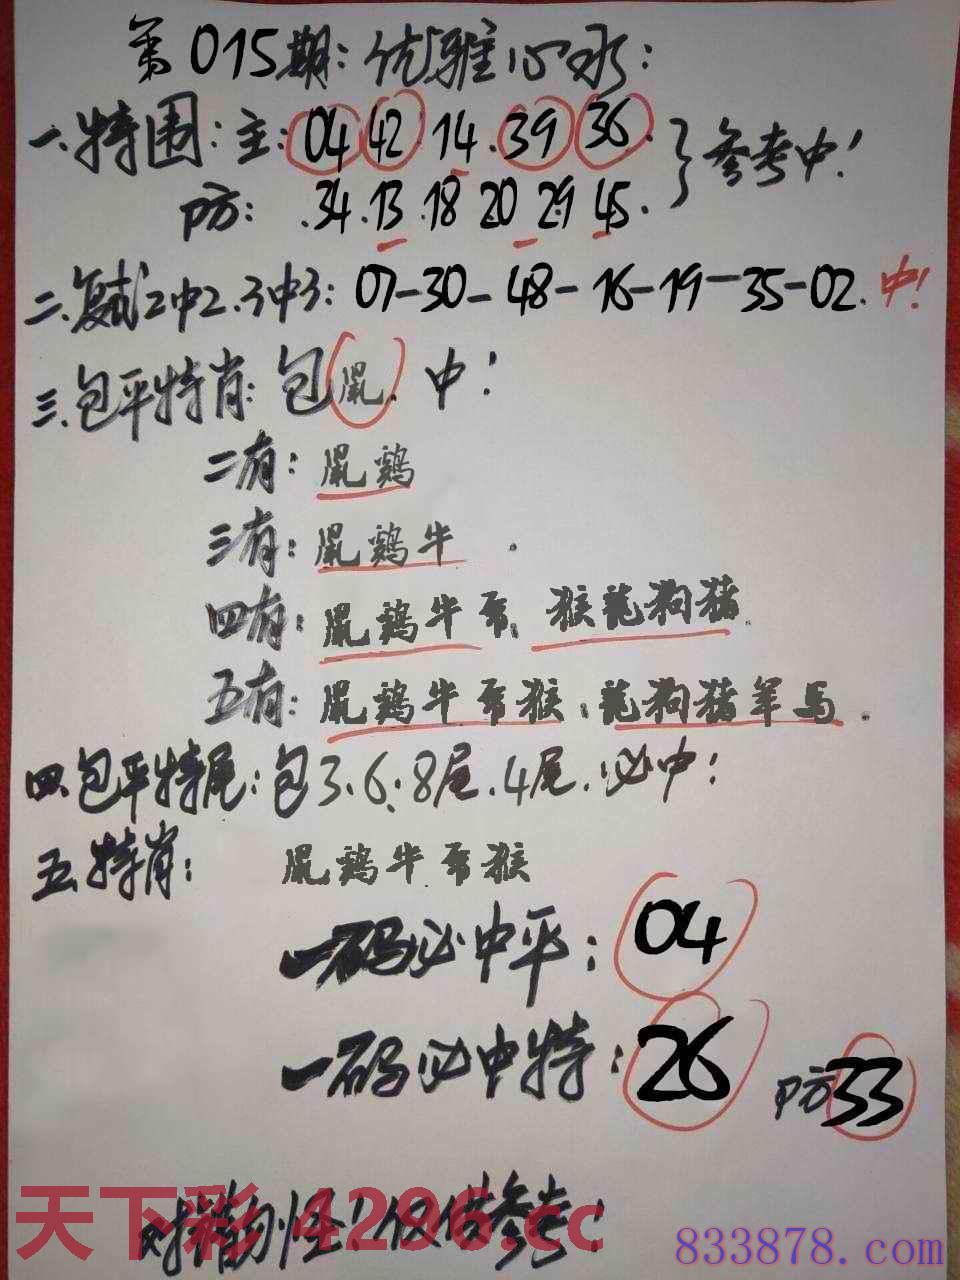 第015期：优雅心水：
一.特围：主：04 42·14.39 36.
参考中！
防：.34.13.18 20 29 45.
二.复式2中2.3中3：07-30-48-16-19-35-02.中！
三.包平特肖：包鼠.中！
二有：鼠鸡
三有：鼠鸡牛.
四有：鼠鸡牛 猴龍狗猪.
五有：鼠鸡牛 猴：龍狗猪羊马.
四.包平特尾：包3.6.8尾.4尾.必中！
五.特肖：鼠鸡牛 猴
一码必中平：04
一码必中特：26 防33
对错勿怪！仅供参考！
天下彩 4296.cc
833878.com